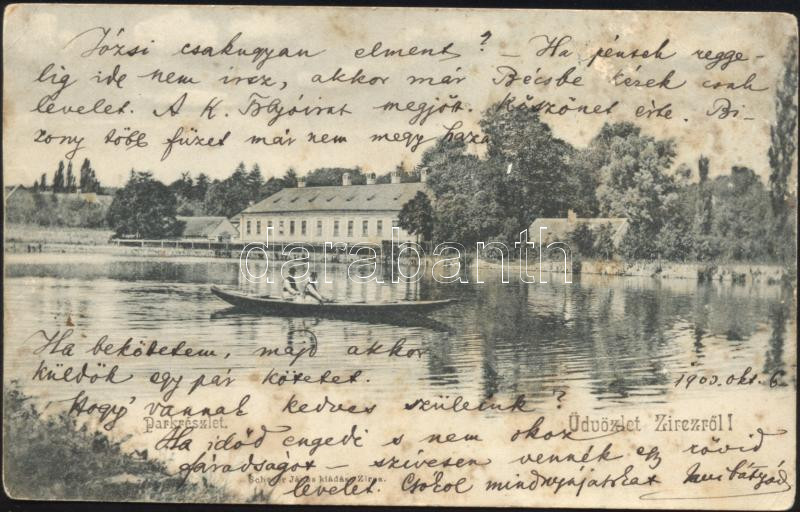 Józsi csakugyan elment? – Ha péntek regge-
lig ide nem irsz, akkor már Bécsbe kérek csak
levelet. A K. megjött. Köszönet érte. Bi-
zony több füzet már nem megy haza
darabanth
Ha bekötetem, majd akkor
küldök egy pár kötetet.
1903. okt. 6.
Hogy vannak kedves szüleink?
Parkrészlet.
Üdvözlet Zirczről!
Ha időd engedi s nem okoz
fáradságot – szivesen vennék egy rövid
levelet. Csókol mindnyájatokat
János kiadása Zircz.